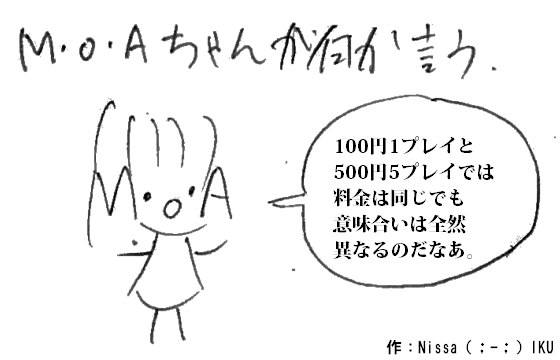 M・O・Aちゃんが何か言う.
M・O・A
100円1プレイと
500円5プレイでは
料金は同じでも
意味合いは全然
異なるのだなあ。
作：Nissa（；－；）IKU